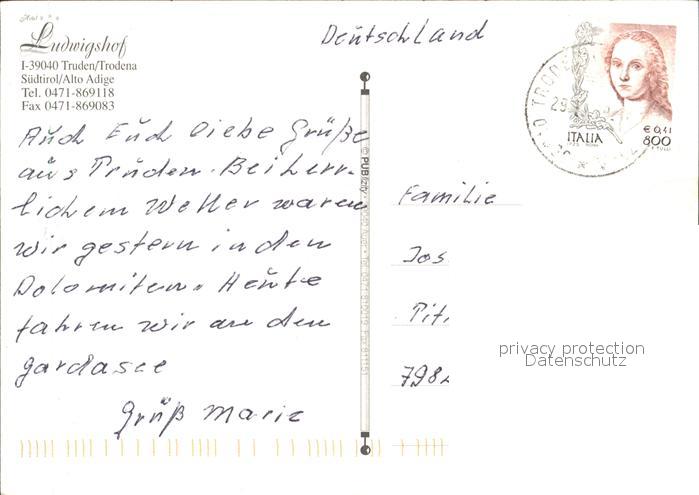 Hotel * * *
Ludwigshof
I-39040 Truden/Trodena
Südtirol/Alto Adige
Tel. 0471-869118
Fax 0471-869083
Deutschland
ITALIA
€ 0,41
800
Auch Euch liebe Grüße
aus Truden. Bei herr-
lichem Wetter waren
wir gestern in den
Dolomiten. Heute
fahren wir an den
Gardasee
Gruß Maria
© PUBlizity
Familie
Jos
Pit
798
privacy protection
Datenschutz